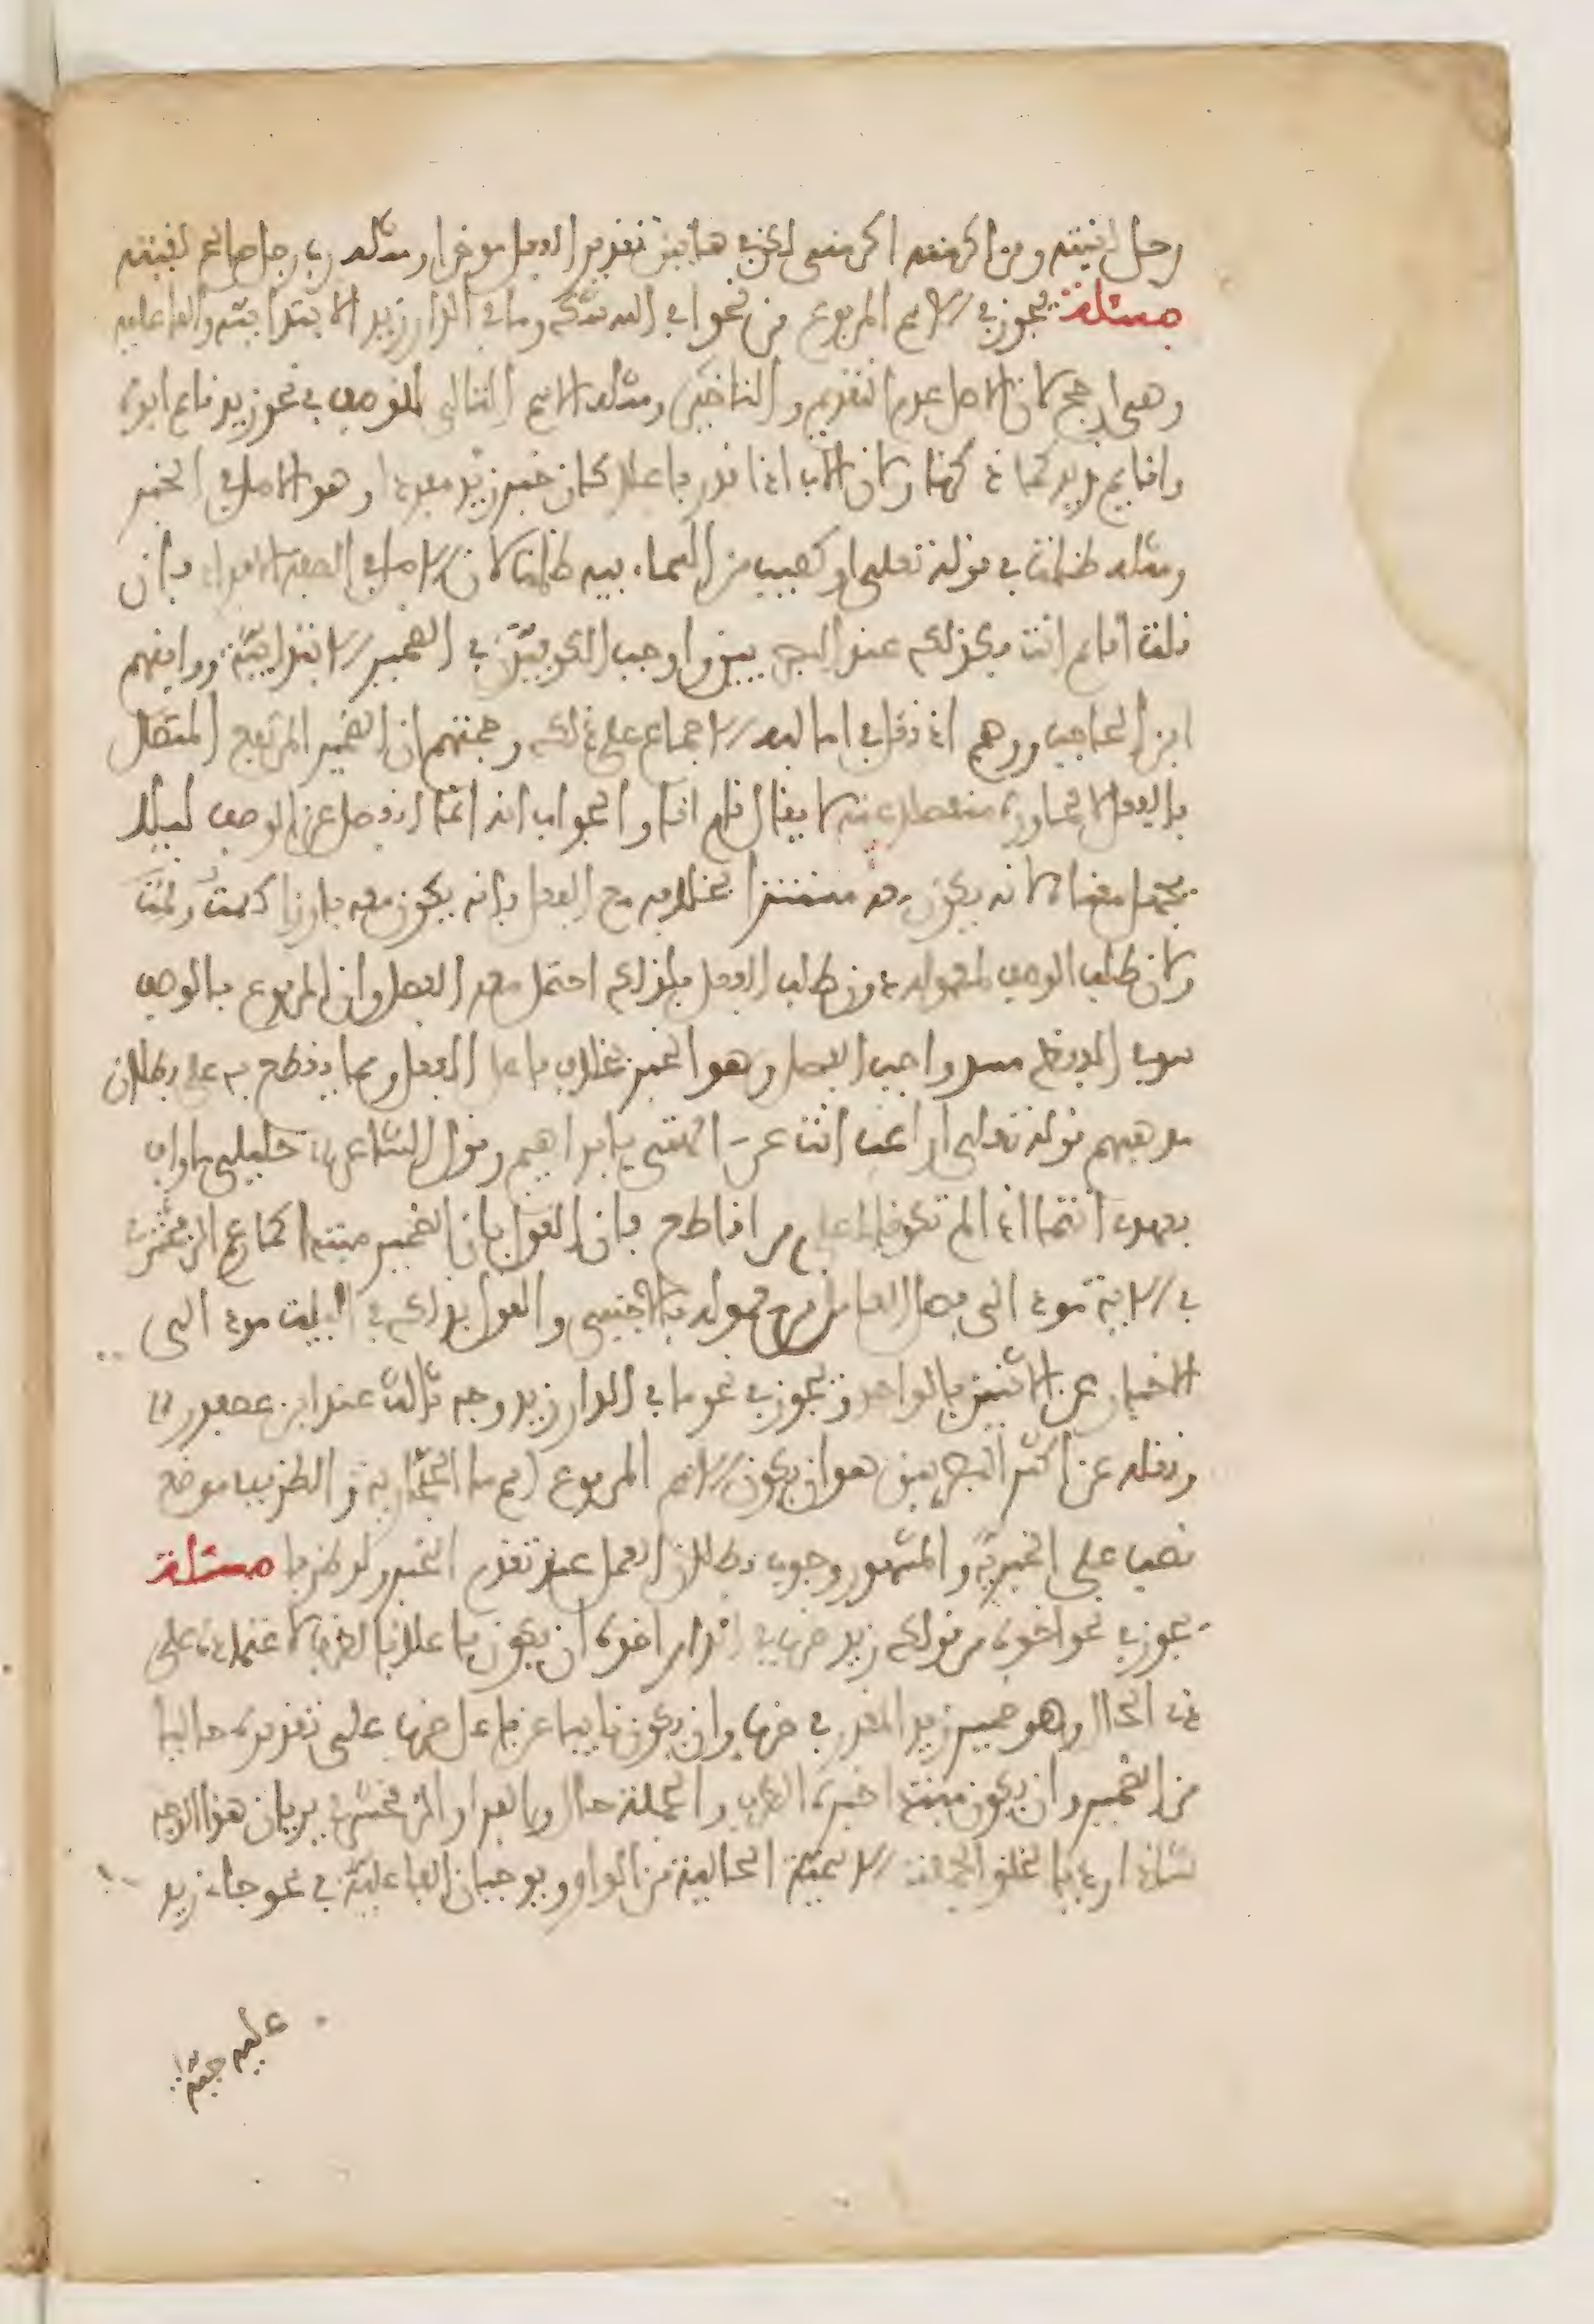 رجل لقيته ومن اكرمته اكرمنى لكن في هاتين تقدير الفعل موخرا ومثله رب رجل صالح لقيته
مسئلة يجوز في الاسم المرفوع من نحو افي الله شك وما في الدار زيد الابتدائية والفاعلية
وهي ارجح لان الاصل عدم التقديم والتاخير ومثله الاسم التالي للوصف في نحو زيد قائم ابوه
واقايم زيد لما ذكرنا ولان الاب اذا قدر فاعلا كان خبر زيد مفردا وهو الاصل في الخبر
ومثله ظلمات في قوله تعلى او كصيب من السماء فيه ظلمات لان الاصل في الصفة الافراد فان
قلت اقايم انت فكذلك عند البصريين واوجب الكوفيون في الضمير الابتدائية ووافقهم
ابن الحاجب ووهم اذ نقل في اماليه الاجماع على ذلك وحجتهم ان الضمير المرتفع المتصل
بالفعل لا يجاوره منفصلا عنه لا يقال قام انا والجواب انه انما انفصل عن الوصف ليلا
يجهل معناه لانه يكون معه مستترا بخلافه مع الفعل فانه يكون معه بارزا كقمت وقمت
ولان طلب الوصف لمعموله دون طلب الفعل فلذلك احتمل معه الفصل ولان المرفوع بالوصف
سد في اللفظ مسد واجب الفصل وهو الخبر بخلاف فاعل الفعل ومما يقطع به على بطلان
مذهبهم قوله تعالى اراغب انت عن الهتي يا ابراهيم وقول الشاعر خليلي ما واف
بعهدي انتما اذا لم تكونا لي على من اقاطع فان القول بان الضمير مبتدا كما زعم الزمخشري
في الاية مؤد الى فصل العامل من معموله بالاجنبي والقول بذلك في البيت مؤد الى
الاخبار عن الاثنين بالواحد ويجوز في نحو ما في الدار زيد وجه ثالث عند ابن عصفور
ونقله عن اكثر البصريين هو ان يكون الاسم المرفوع اسم ما الحجازية والظرف في موضع
نصب على الخبرية والمشهور وجوب بطلان العمل عند تقدم الخبر ولو ظرفا مسئلة
يجوز في نحو اخوه من قولك زيد ضرب في الدار اخوه ان يكون فاعلا بالظرف لاعتماده على
ذي الحال وهو ضمير زيد المقدر في ضرب وان يكون نايبا عن فاعل ضرب على تقديره خاليا
من الضمير وان يكون مبتدا خبره الظرف والجملة حال والفراء والزمخشري يريان هذا الوجه
شاذا رديا لخلو الجملة الاسمية الحالية من الواو ويوجبان الفاعلية في نحو جاء زيد
عليه جبة